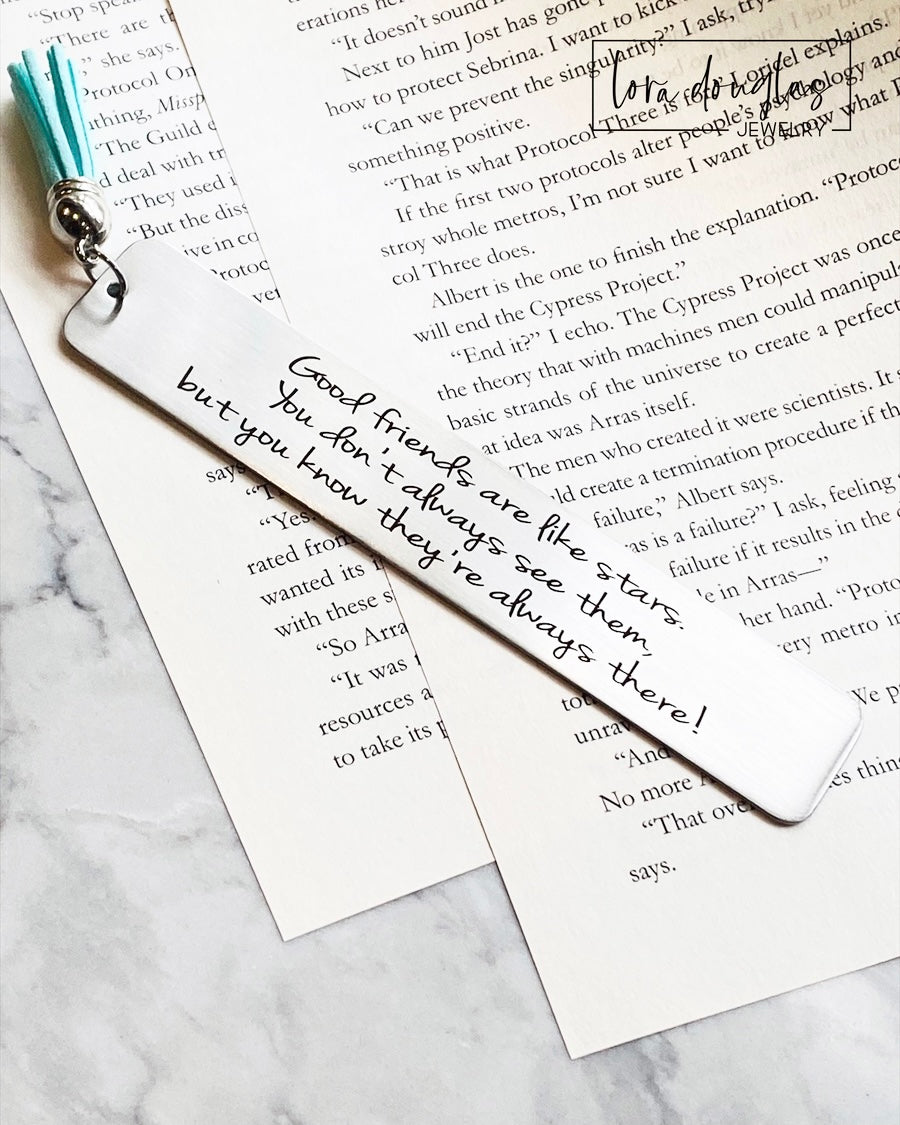 "Stop speak
"There are th
" she says.
Protocol On
thing, Missp
"The Guild e
d deal with tr
"They used i
"But the diss
ive in co
Protoc
ver
says
"T
"Yes.
rated from
wanted its i
with these s
"So Arra
"It was t
resources a
to take its
erations he
"It doesn't sound
Next to him Jost has gone
how to protect Sebrina. I want to kick
"Can we prevent the singularity?" I ask, try
something positive.
"That is what Protocol Three is for," Loricel explains.
If the first two protocols alter people's psychology and
stroy whole metros, I'm not sure I want to know what
col Three does.
Albert is the one to finish the explanation. "Protoc
will end the Cypress Project."
"End it?" I echo. The Cypress Project was once
the theory that with machines men could manipul
basic strands of the universe to create a perfect
at idea was Arras itself.
The men who created it were scientists. It s
ld create a termination procedure if th
failure," Albert says.
as is a failure?" I ask, feeling
failure if it results in the
le in Arras—"
her hand. "Proto
ery metro in
We p
tot
unrav
"And
No more
es thin
"That ove
says.
lora douglas
JEWELRY
Good friends are like stars.
You don't always see them,
but you know they're always there!